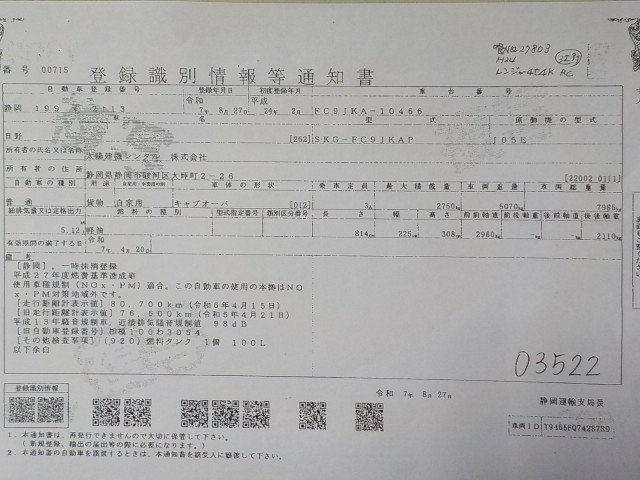 番号 00715
登録識別情報等通知書
H24
自動車登録番号 登録年月日 初度登録年月 車台番号
静岡 199 2113 令和 7年 8月 27日 平成 24年 2月 FC9JKA-10466
車名 型式 原動機の型式
日野 [262] SKG-FC9JKAP J05E
所有者の氏名又は名称 太陽建機レンタル 株式会社
所有者の住所 静岡県静岡市駿河区大坪町2-26 [22002 0111]
自動車の種別 用途 自家用・事業用の別 車体の形状 乗車定員 最大積載量 車両重量 車両総重量
普通 貨物 自家用 キャブオーバ [012] 3人 2750kg 5070kg 7985kg
総排気量又は定格出力 燃料の種類 型式指定番号 類別区分番号 長さ 幅 高さ 前前軸重 前後軸重 後前軸重 後後軸重
5.12 軽油 814cm 225cm 308cm 2960kg -kg -kg 2110kg
有効期間の満了する日 令和 7年 4月 20日
備考
[静岡], 一時抹消登録
平成27年度燃費基準達成車
使用車種規制(NOx・PM)適合。この自動車の使用の本拠はNO
x・PM対策地域外です。
[走行距離計表示値] 80,700km (令和6年4月15日)
[旧走行距離計表示値] 76,500km (令和5年4月21日)
平成13年騒音規制車、近接排気騒音規制値 98dB
[旧自動車登録番号] 相模100わ3054
[その他検査事項] (920) 燃料タンク 1個 100L
以下余白
03522
登録識別情報
令和 7年 8月 27日
静岡運輸支局長
車両ID 79465FQ7428789
1. 本通知書は、再発行できませんので大切に保管して下さい。
(新規登録、輸出の届出等の際に必要になります。)
2. 本通知書の自動車を譲渡するときは、本通知書を譲受人に譲渡して下さい。